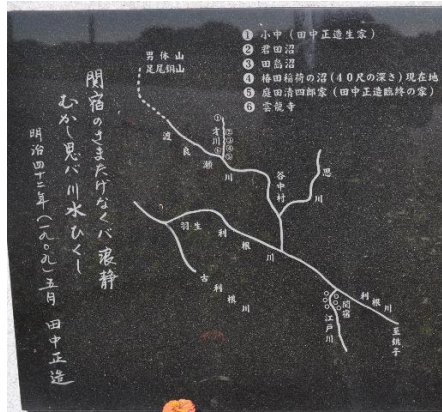 ❶小中(田中正造生家)
❷君田沼
❸田島沼
❹椿田稲荷の沼(40尺の深さ)現在地
❺庭田清四郎家(田中正造臨終の家)
❻雲龍寺
男体山
足尾銅山
渡良瀬川
才川
谷中村
思川
羽生
利根川
古利根川
関宿
江戸川
利根川
至銚子
関宿のさまたげなくバ浪静
むかし思バ川水ひくし
明治四十二年(一九〇九)五月 田中正造